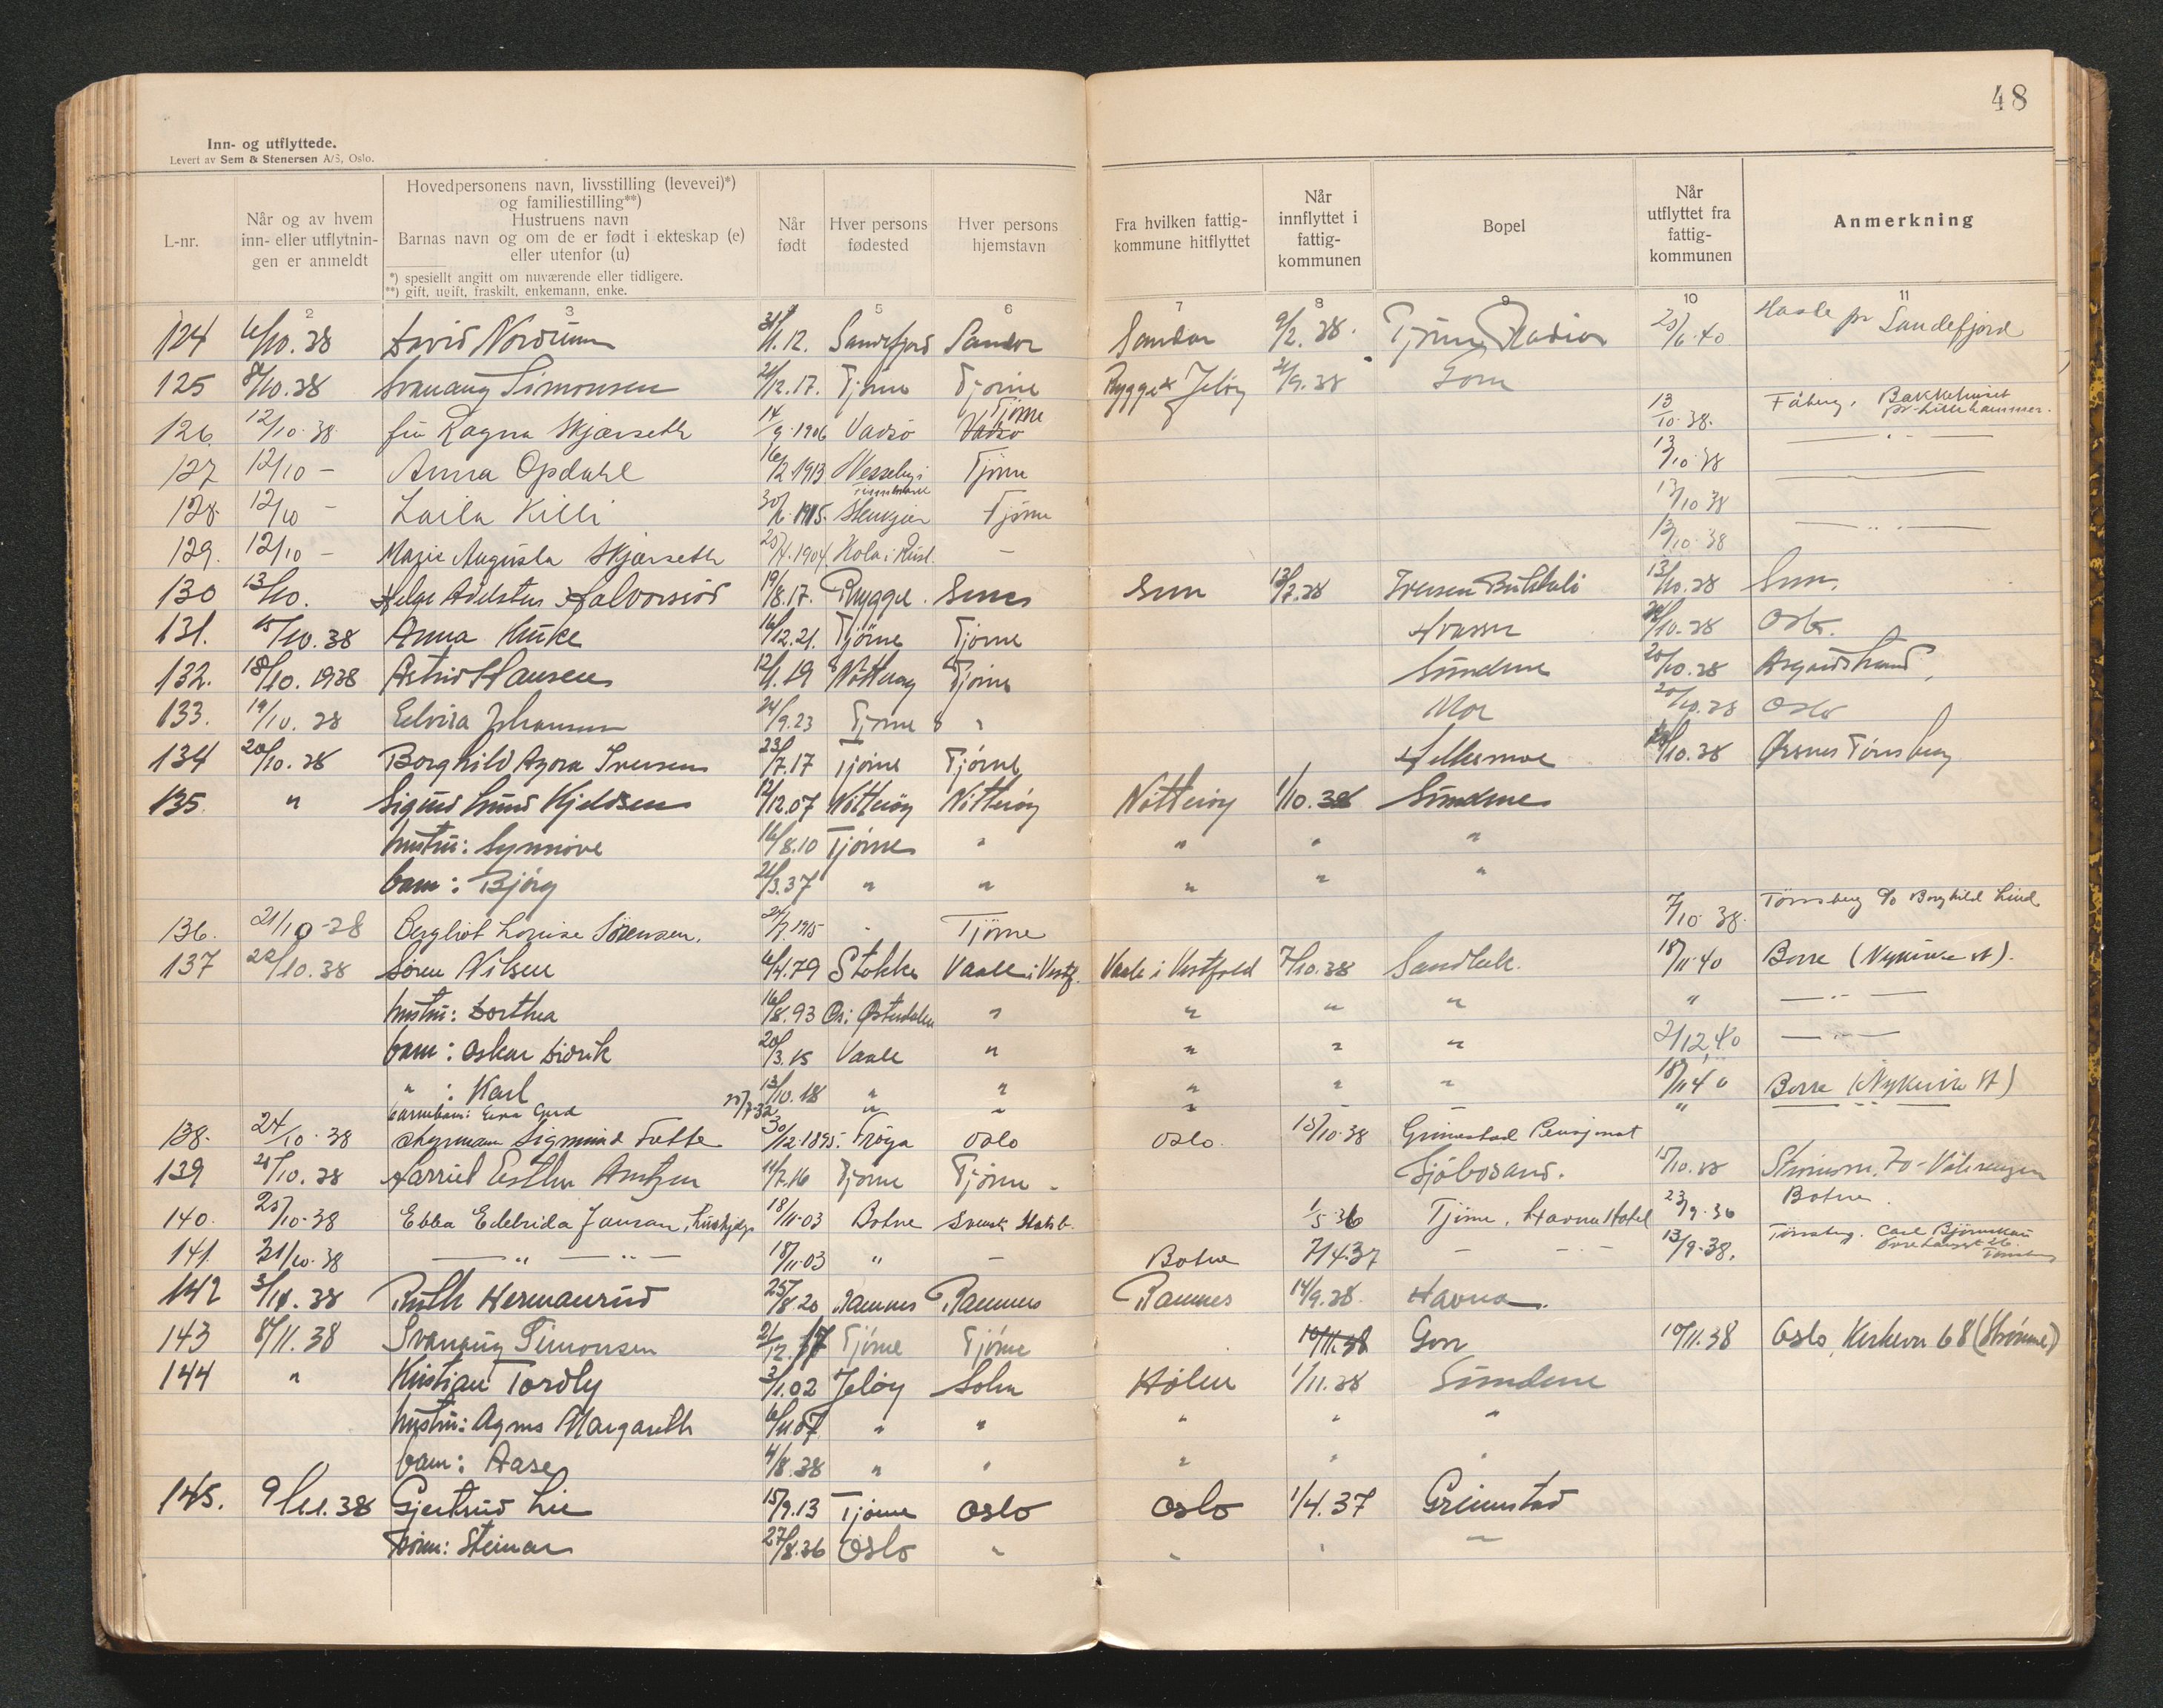 48
Inn- og utflyttede.
Levert av Sem & Stenersen A/S, Oslo.
L-nr.
Når og av hvem inn- eller utflytnin-gen er anmeldt
Hovedpersonens navn, livsstilling (levevei)*)
og familiestilling**)
Hustruens navn
Barnas navn og om de er født i ekteskap (e)
eller utenfor (u)
*) spesiellt angitt om nuværende eller tidligere.
**) gift, ugift, fraskilt, enkemann, enke.
Når født
Hver persons fødested
Hver persons hjemstavn
Fra hvilken fattig-kommune hitflyttet
Når innflyttet i fattig-kommunen
Bopel
Når utflyttet fra fattig-kommunen
Anmerkning
2 3 5 6 7 8 9 10 11
124 6/10.38 David Nordrum 31/1.12. Sandefjord Sandar Sandar 9/2.38. Tjøme Radio 25/6.40 Hasle pr Sandefjord
125 8/10.38 Svanaug Simonsen 21/12.17. Tjøme Tjøme Rygge Jeløy 21/9.38 Gon
126. 12/10.38 fru Ragna Skjærseth 14/9.1906 Vadsö Vadsö Tjöme 13/10.38. Fåberg, Bakkehuset pr. Lillehammer.
127 12/10 - Anna Opdahl 16/2 1913 Nesseby i Finnmark Tjöme 13/10.38 —
128. 12/10 - Laila Killi 30/6.1915. Stenkjær Tjöme 13/10 38 —
129. 12/10 - Mazie Augusta Skjærseth 25/4.1904 Kola i Russl. — 13/10.38 — " —
130 13/10. Helge Adelsten Halvorsrød 19/8.17. Rygge. Sem Sem 13/7.38 Iversen 13/10.38 Sem.
131. 15/10.38 Anna 16/12.21. Tjöme Tjöme Hvasser /10.38 Oslo.
132. 18/10.1938 Astrid Hansen 12/1.19 Nötteröy Tjöme Sundene 20/10.38 Aasgaardstrand,
133. 19/10.38 Edvisa Johansen 24/9.23 Tjøme " Moe 20/10.38 Oslo
134 20/10.38 Borghild Agora Iversen 23/7.17 Tjöme Tjöme /10.38 Ørsnes Tönsberg
135. " Sigurd Lund Kjeldsen 12/12.07 Nötteröy Nötteröy Nötteröy 1/10.38 Sundene
hustru: Synnöve 16/8.10 Tjöme " " " "
barn: Bjørg 21/3.37 " " " " "
136. 21/10-38 Bergliot Louise Sörensen. 24/7.1915 - Tjöme 7/10.38. Tönsberg c/o Borghild Lind
137 22/10.38 Sören Nilsen 6/4.79 Stokke Vaale i Vestf. Vaale i Vestfold 7/10.38 Sandbek. 18/11.40 Borre (Nykirke st).
hustru: Dorthea 16/8.93 Os i Østerdalen " " " " " — " —
barn: Oskar Didrik 20/3.15 Vaale " " " " 2/12.40 — " —
" : Karl 13/10.18 " " " " " 18/11 40 Borre (Nykirke st)
barnebarn: Eva Gerd 25/7-32 " " " "
138. 24/10.38 Styrmann Sigmund Tvette 30/12.1895. Fröya Oslo Oslo. 15/10.38 Grimestad Pensjonat
139 25/10.38 Harriet Esther Arntzen 11/7.16 Tjöme Tjöme - Sjöbosand. 15/10.38 Vålerengen
140. 25/10-38 Ebba Edelrida Jansan, hushjelp 18/11-03 Botne Svensk Statsb. 1/5.36 Tjöme, Havna Hotel 23/9.36 Botne.
141. 31/10.38 — " — " — 18/11-03 " — Botne 7/4.37 — - - — 13/9.38. Tönsberg. Carl Björnskau Övre Langgt 26. Tönsberg
142 3/11.38 Ruth Hermansrud 25/8 20 Ramnes Ramnes Ramnes 14/9.38. Havna.
143 8/11.38 Svanaug Simonsen 21/12.17 Tjöme Tjöme 10/11.38 Gon 10/11.38 Oslo, Kirkevn 68 (Strömme)
144 " Kristian Tordly 3/1.02 Jeløy Hölen 1/11.38 Sundene
hustru: Agnes Margareth 6/11 07 " " " " "
barn: Aase 4/8.38 " " " " "
145. 9/11.38 Gjertrud Lie 15/9.13 Tjöme Oslo Oslo 1/4.37 Grimestad
sönn: Steinar 27/8.36 Oslo " " " "